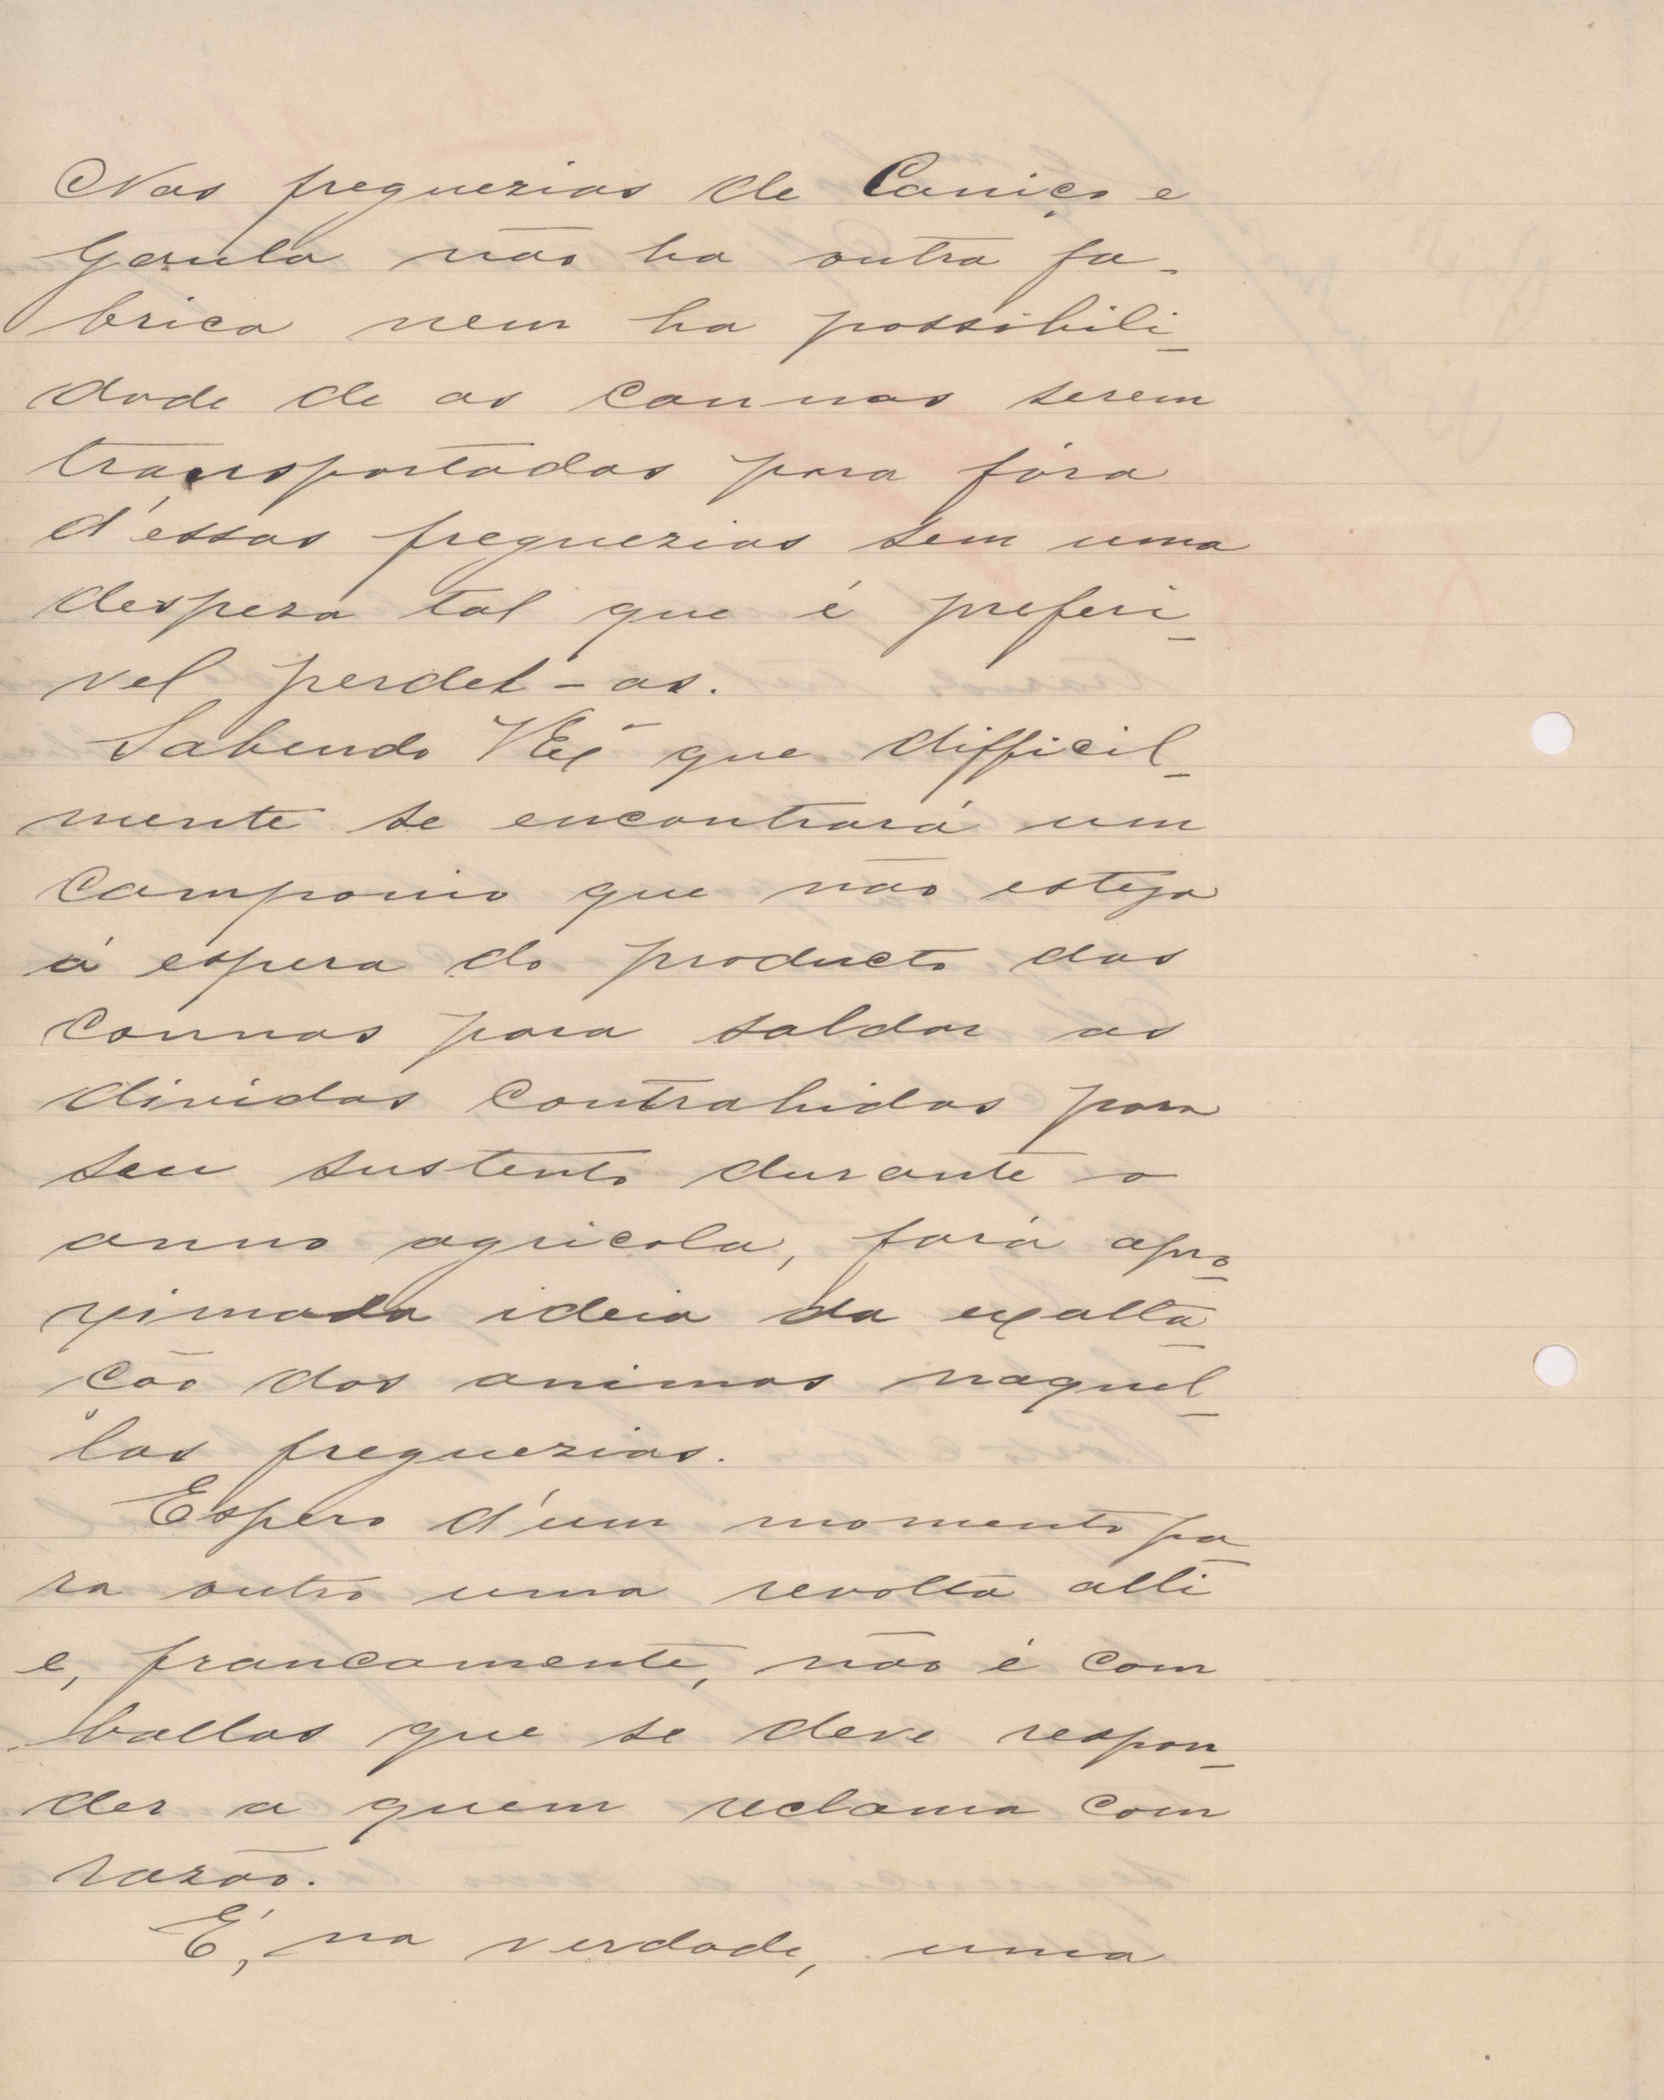 Nas freguezias de Caniço e
Gaula não ha outra fa-
brica nem ha possibili-
dade de as cannas serem
transportadas para fóra
d'essas freguezias sem uma
despeza tal que é preferi-
vel perdel-as.
Sabendo VExª que difficil-
mente se encontrará um
camponio que não esteja
á espera do producto das
cannas para saldar as
dividas contrahidas para
seu sustento durante o
anno agricola, fará apro-
ximada ideia da exalta-
ção dos animos naquel-
las freguezias.
Espero d'um momento pa-
ra outro uma revolta alli
e, francamente, não é com
ballas que se deve respon-
der a quem reclama com
razão.
É, na verdade, uma